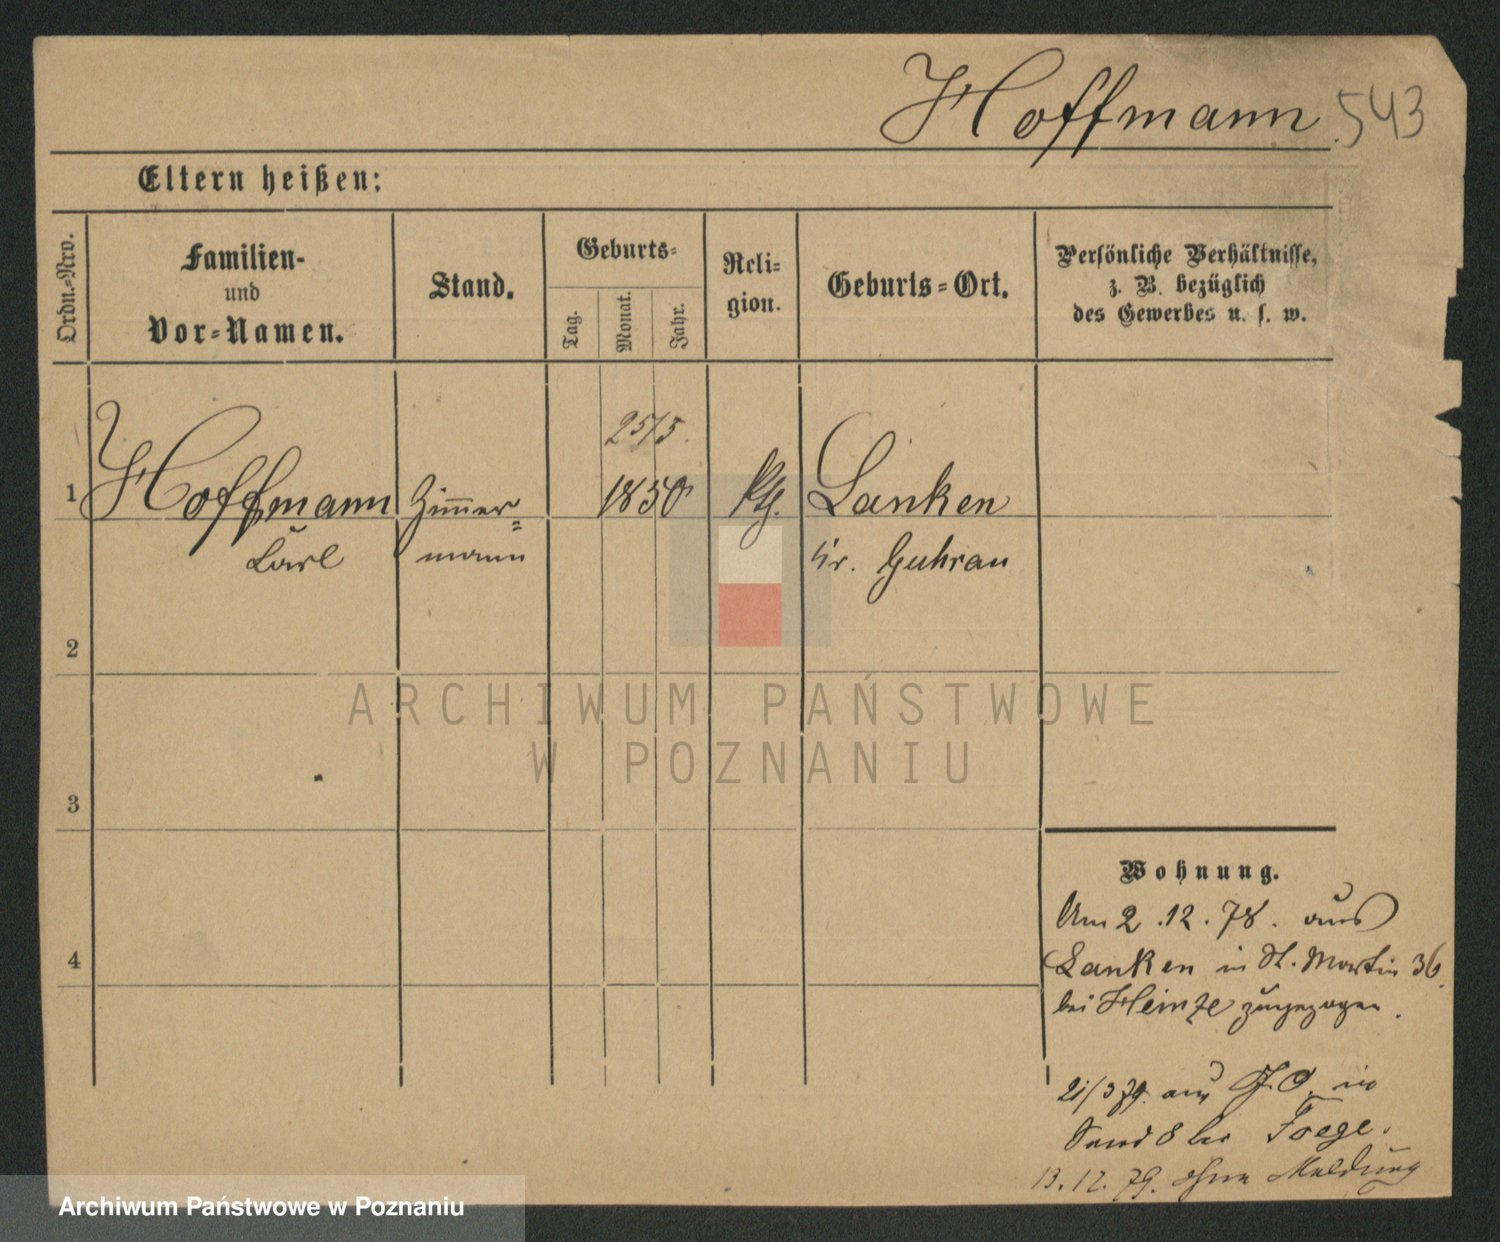 Hoffmann 543
Eltern heißen:
Ordn.-Nro.
Familien-
und
Vor-Namen.
Stand.
Geburts-
Tag.
Monat.
Jahr.
Reli-
gion.
Geburts-Ort.
Persönliche Verhältnisse,
z. B. bezüglich
des Gewerbes u. s. w.
25/5.
1 Hoffmann Zimmer= 1850 Lanken
Carl mann Kr. Guhrau
2
3
4
ARCHIWUM PAŃSTWOWE
W POZNANIU
Wohnung.
Am 2.12.78. aus
Lanken in St. Martin 36
bei Heinze zugezogen.
21/3 79. aus in
Sand 8 bei Foege.
13.12.79. ohne Meldung
Archiwum Państwowe w Poznaniu